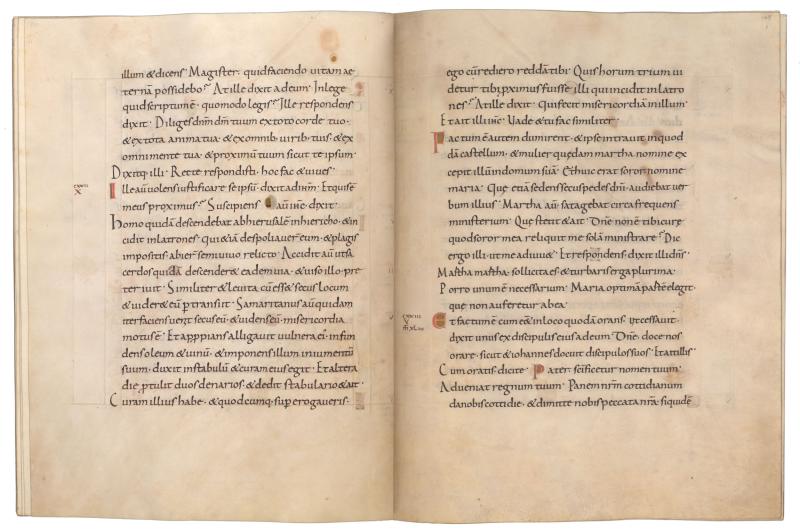 illum & dicens· Magister· quid faciendo uitam ae
ternā possidebo· At ille dixit ad eum· In lege
quid scriptum ē· quomodo legis· Ille respondens
dixit· Diliges dn̄m dm̄ tuum ex toto corde tuo·
& ex tota anima tua· & ex omnib· uirib· tuis· & ex
omni mente tua· & proximū tuum sicut te ipsum·
Dixitq· illi· Recte respondisti· hoc fac & uiues·
Ille aū uolens iustificare se ipsū· dixit ad ihm̄· Et quis ē
meus proximus· Suscipiens aū ihc̄· dixit·
homo quidā descendebat ab hierusalē in hiericho· & in
cidit in latrones· qui & iā despoliauer̄ eum· & plagis
impositis abier̄ semiuiuo relicto· Accidit aū ut sa
cerdos quidā descender& eadem uia· & uiso illo pre
ter iuit· Similiter & leuita cū ess& secus locum
& uider& eū p transit· Samaritanus aū quidam
iter faciens uenit secus eū· & uidens eū misericordia
motus ē· Et apppians alligauit uulnera ei· infun
dens oleum & uinū· & imponens illum in iumentū
suum· duxit in stabulū & curam eius egit· Et altera
die ptulit duos denarios· & dedit stabulario & ait·
Curam illius habe· & quodcumq· sup erogaueris·
ego cū rediero reddā tibi· Quis horum trium ui
detur tibi pximus fuisse illi qui incidit in latro
nes· At ille dixit· Qui fecit misericordiā in illum·
Et ait illi ihc̄· Uade & tu fac similiter·
Factum ē autem dum irent· & ipse intrauit in quod
dā castellum· & mulier quedam martha nomine ex
cepit illū in domum suā· Et huic erat soror nomine
maria· Que etiā sedens secus pedes dn̄i· audiebat uer
bum illius· Martha aū satagebat circa frequens
ministerium· Que stetit & ait· Dn̄e non ē tibi cure
quod soror mea reliquit me solā ministrare· Dic
ergo illi· ut me adiuu&· Et respondens dixit illi dn̄s·
Martha martha· sollicita es & turbaris erga plurima·
Porro unum ē necessarium· Maria optimā partē elegit·
que non auferetur ab ea·
Et factum ē cum ee& in loco quodā orans· ut cessauit·
dixit unus ex discipulis eius ad eum· Dn̄e· doce nos
orare· sicut & iohannes docuit discipulos suos· Et ait illis·
Cum oratis· dicite· Pater· sc̄ificetur nomen tuum·
Adueniat regnum tuum· Panem nrm̄ cottidianum
da nobis cottidie· & dimitte nobis peccata nra·̄ siquidē